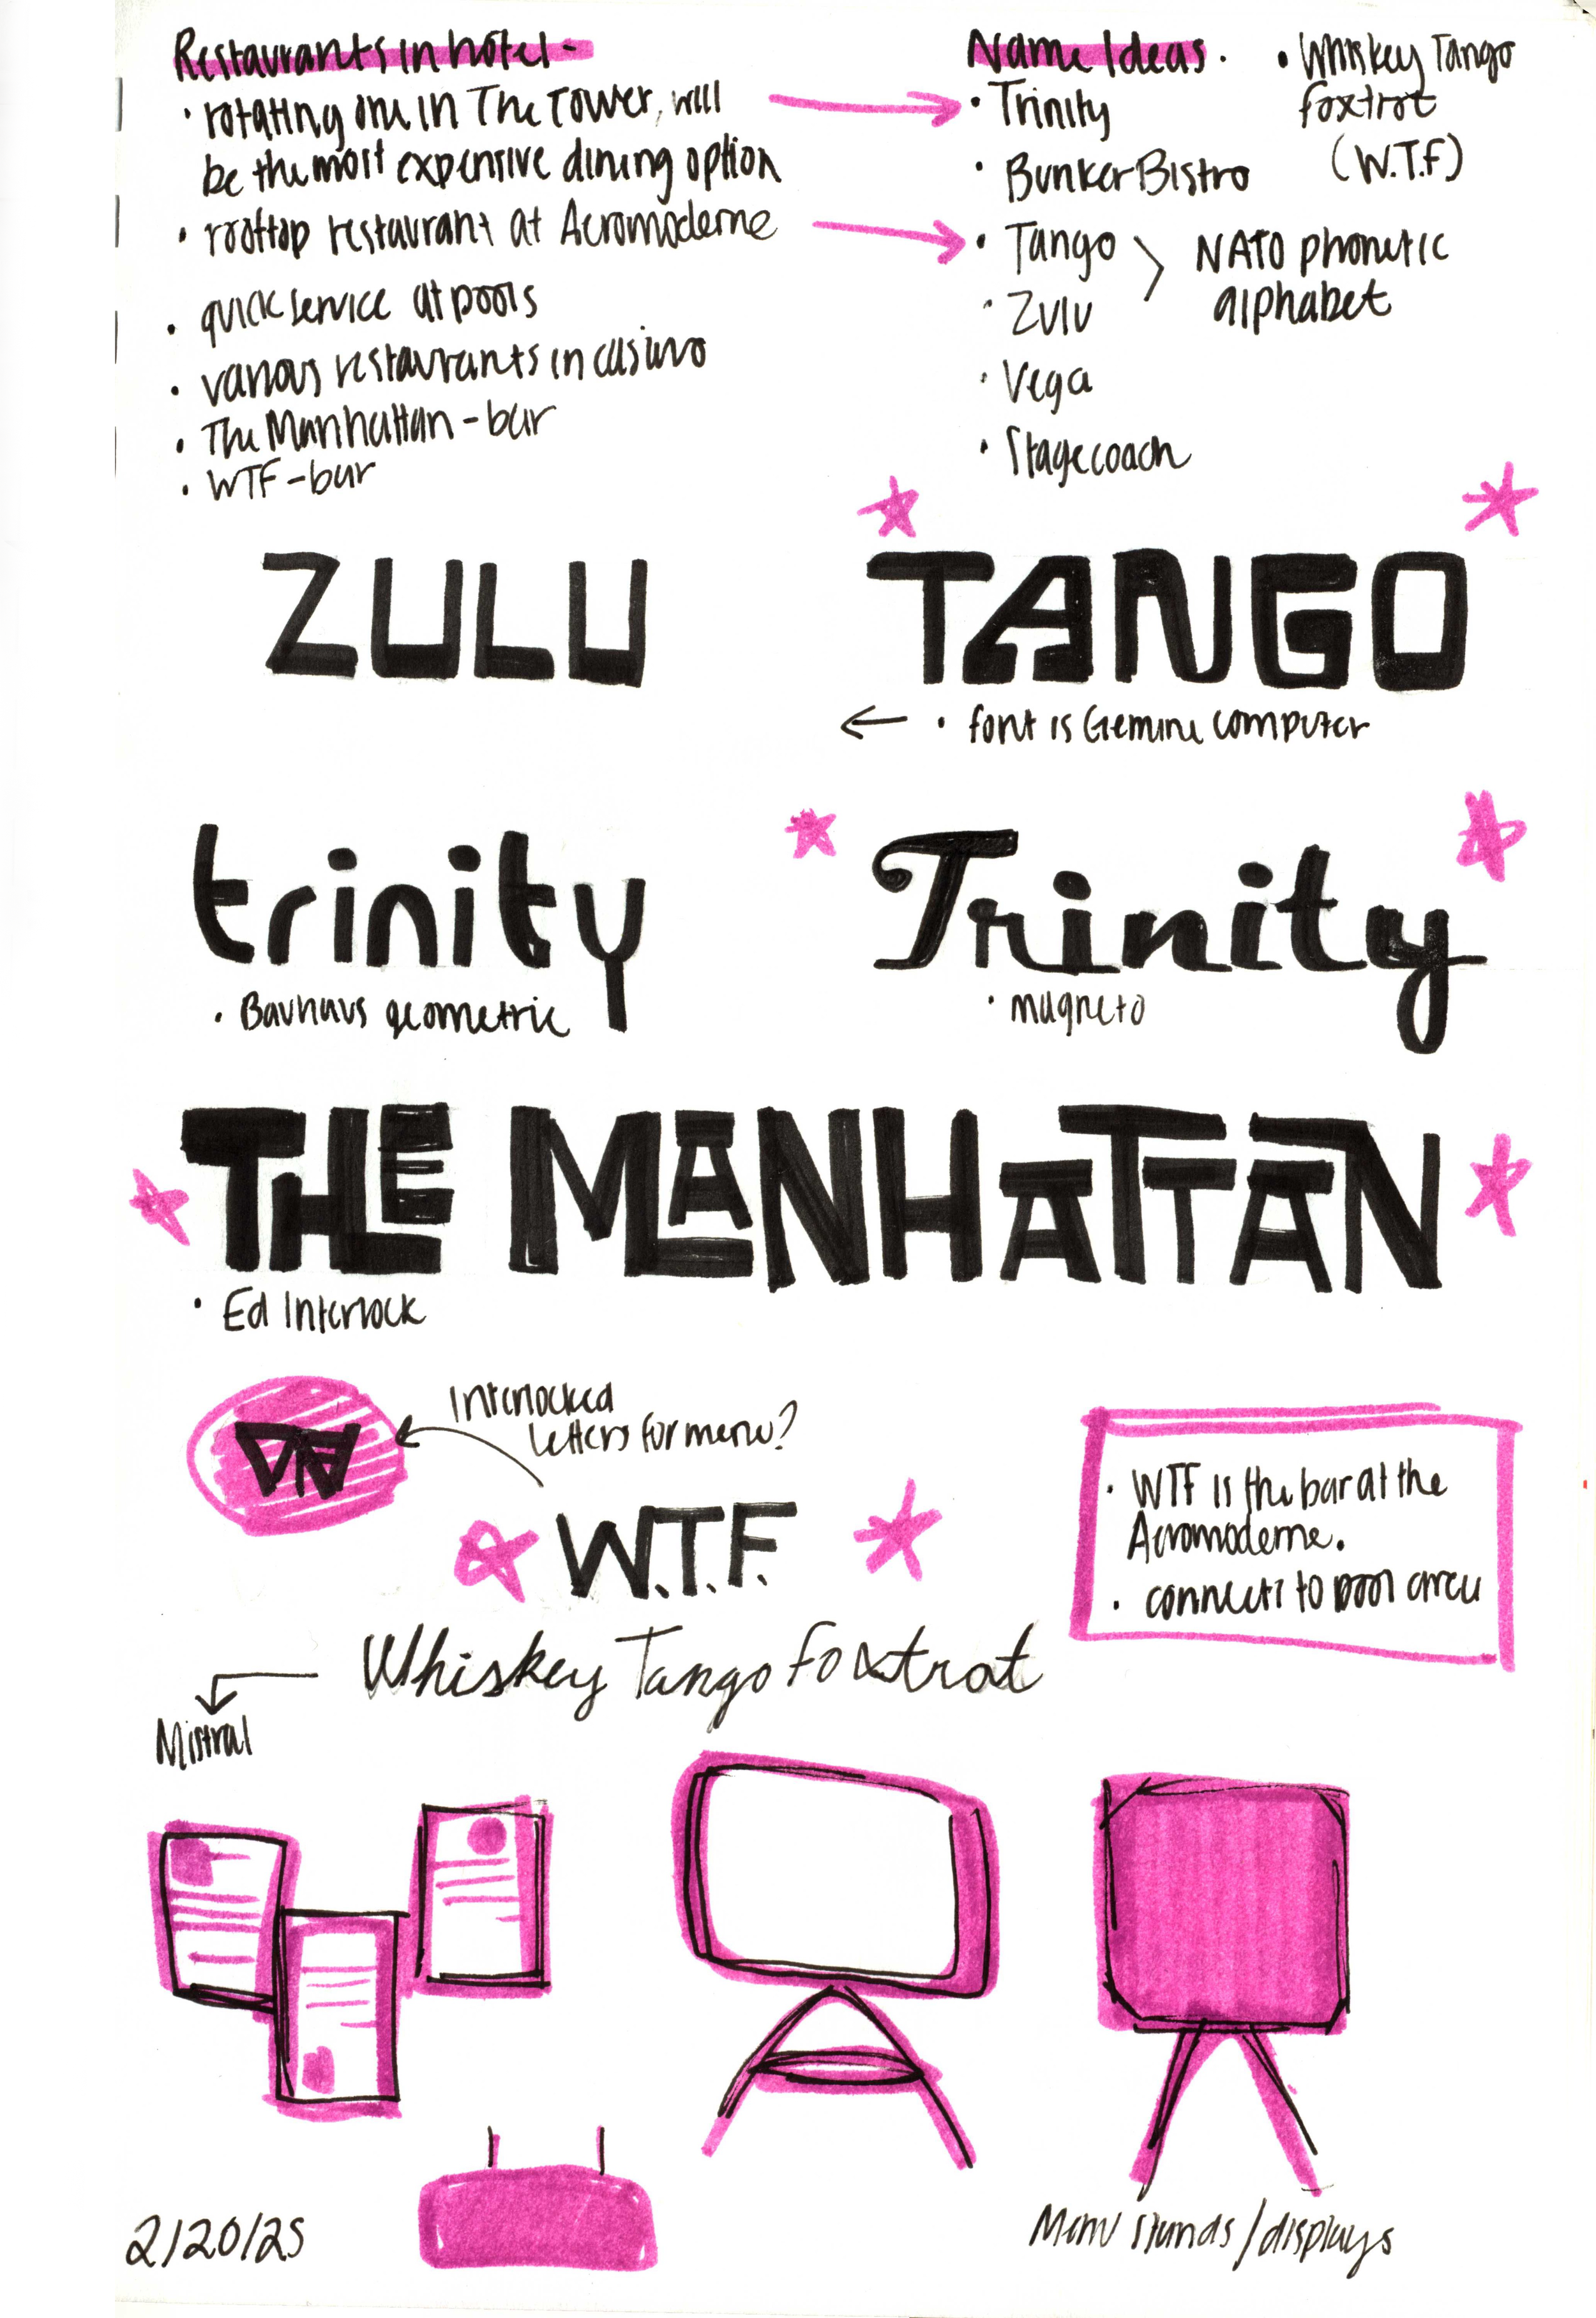 Restaurants in hotel-
• rotating one in The Tower, will
be the most expensive dining option
• rooftop restaurant at Acromoderne
• quick service at pools
• various restaurants in casino
• The Manhattan - bar
• WTF - bar
Name Ideas.
• Trinity
• Bunker Bistro
• Tango
• Zulu
NATO phonetic
alphabet
• Vega
• Stagecoach
• Whiskey Tango
Foxtrot
(W.T.F)
ZULU
TANGO
• font is Gemini computer
trinity
• Bauhaus geometric
Trinity
• magneto
THE MANHATTAN
• Ed Interlock
Interlocked
letters for menu?
W.T.F.
• WTF is the bar at the
Acromoderne.
• connects to pool area
Whiskey Tango Foxtrot
Mistral
2/20/25
Menu stands/displays